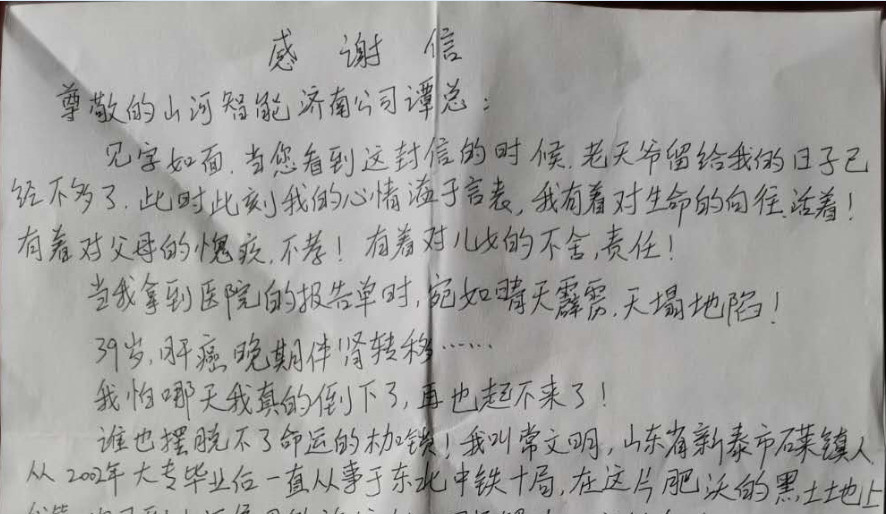 感谢信
尊敬的山河智能济南公司谭总：
见字如面，当您看到这封信的时候，老天爷留给我的日子已
经不多了，此时此刻我的心情溢于言表，我有着对生命的向往，活着！
有着对父母的愧疚，不孝！有着对儿女的不舍，责任！
当我拿到医院的报告单时，宛如晴天霹雳，天塌地陷！
39岁，肝癌晚期伴肾转移……
我怕哪天我真的倒下了，再也起不来了！
谁也摆脱不了命运的枷锁！我叫常文明，山东省新泰市镇人
从2002年大专毕业后一直从事于东北中铁十局，在这片肥沃的黑土地上